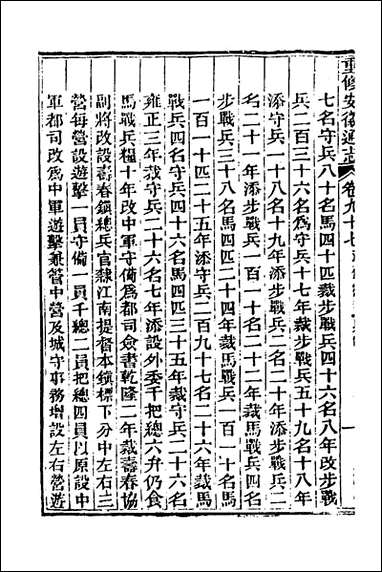 重修安徽通志 卷九十七
七名守兵八十名馬四十匹裁步戰兵四十六名八年改步戰
兵二百三十六名為守兵十七年裁步戰兵五十九名十八年
添守兵一十八名十九年添步戰兵二名二十年添步戰兵二
名二十一年添步戰兵一百一十名二十二年裁馬戰兵四名
步戰兵三十八名馬四匹二十四年裁馬戰兵一百一十名馬
一百一十匹二十五年添守兵二百九十七名二十六年裁馬
戰兵四名守兵四十六名馬四匹三十五年裁守兵二十六名
雍正三年裁守兵二十六名七年添設外委千把總六弁仍食
馬戰兵糧十年改中軍守備為都司僉書乾隆二年裁壽春協
副將改設壽春鎮總兵官隸江南提督本鎮標下分中左右三
營每營設遊擊一員守備一員千總二員把總四員以原設中
軍都司改為中軍遊擊兼管中營及城守事務增設左右營遊